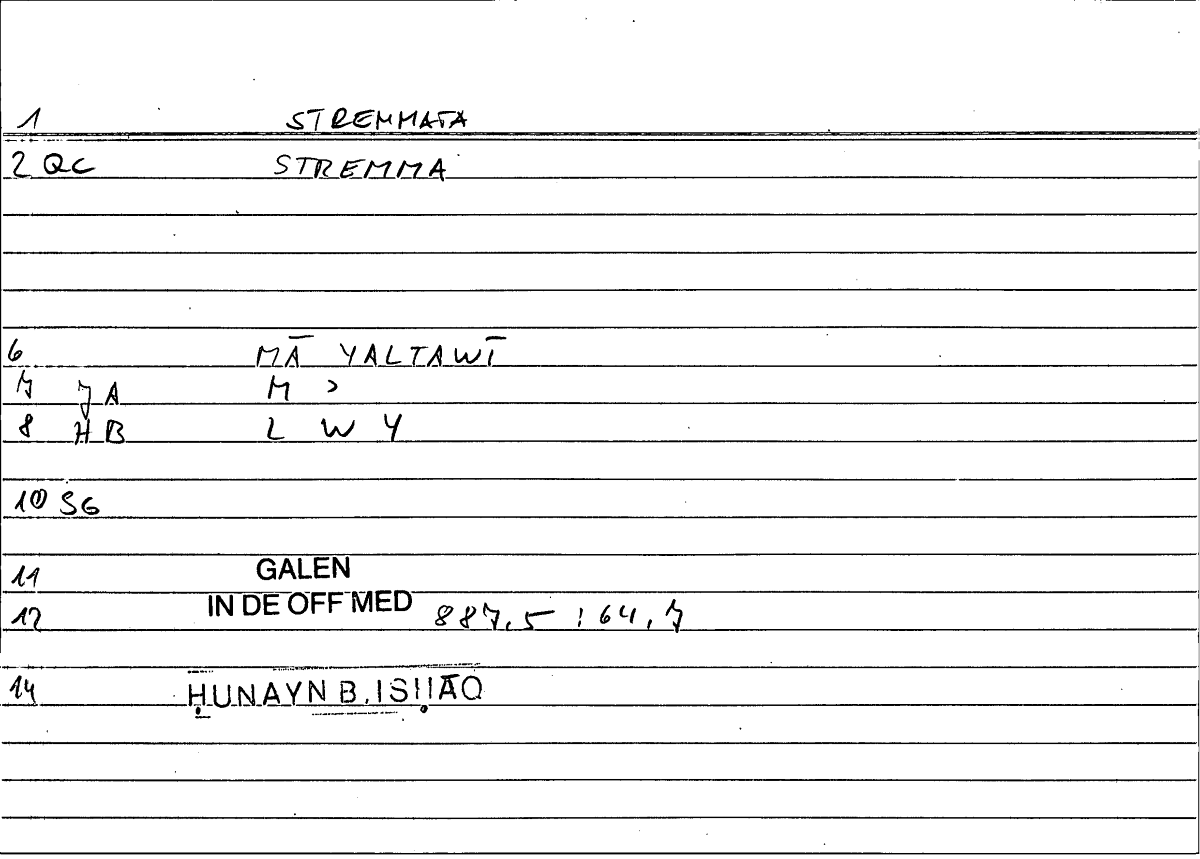 1 STREMMATA
2 QC STREMMA
6 MĀ YALTAWĪ
7 JA M ʾ
8 HB L W Y
10 SG
11 GALEN
12 IN DE OFF MED 887,5 : 64,7
14 ḤUNAYN B. ISḤĀQ